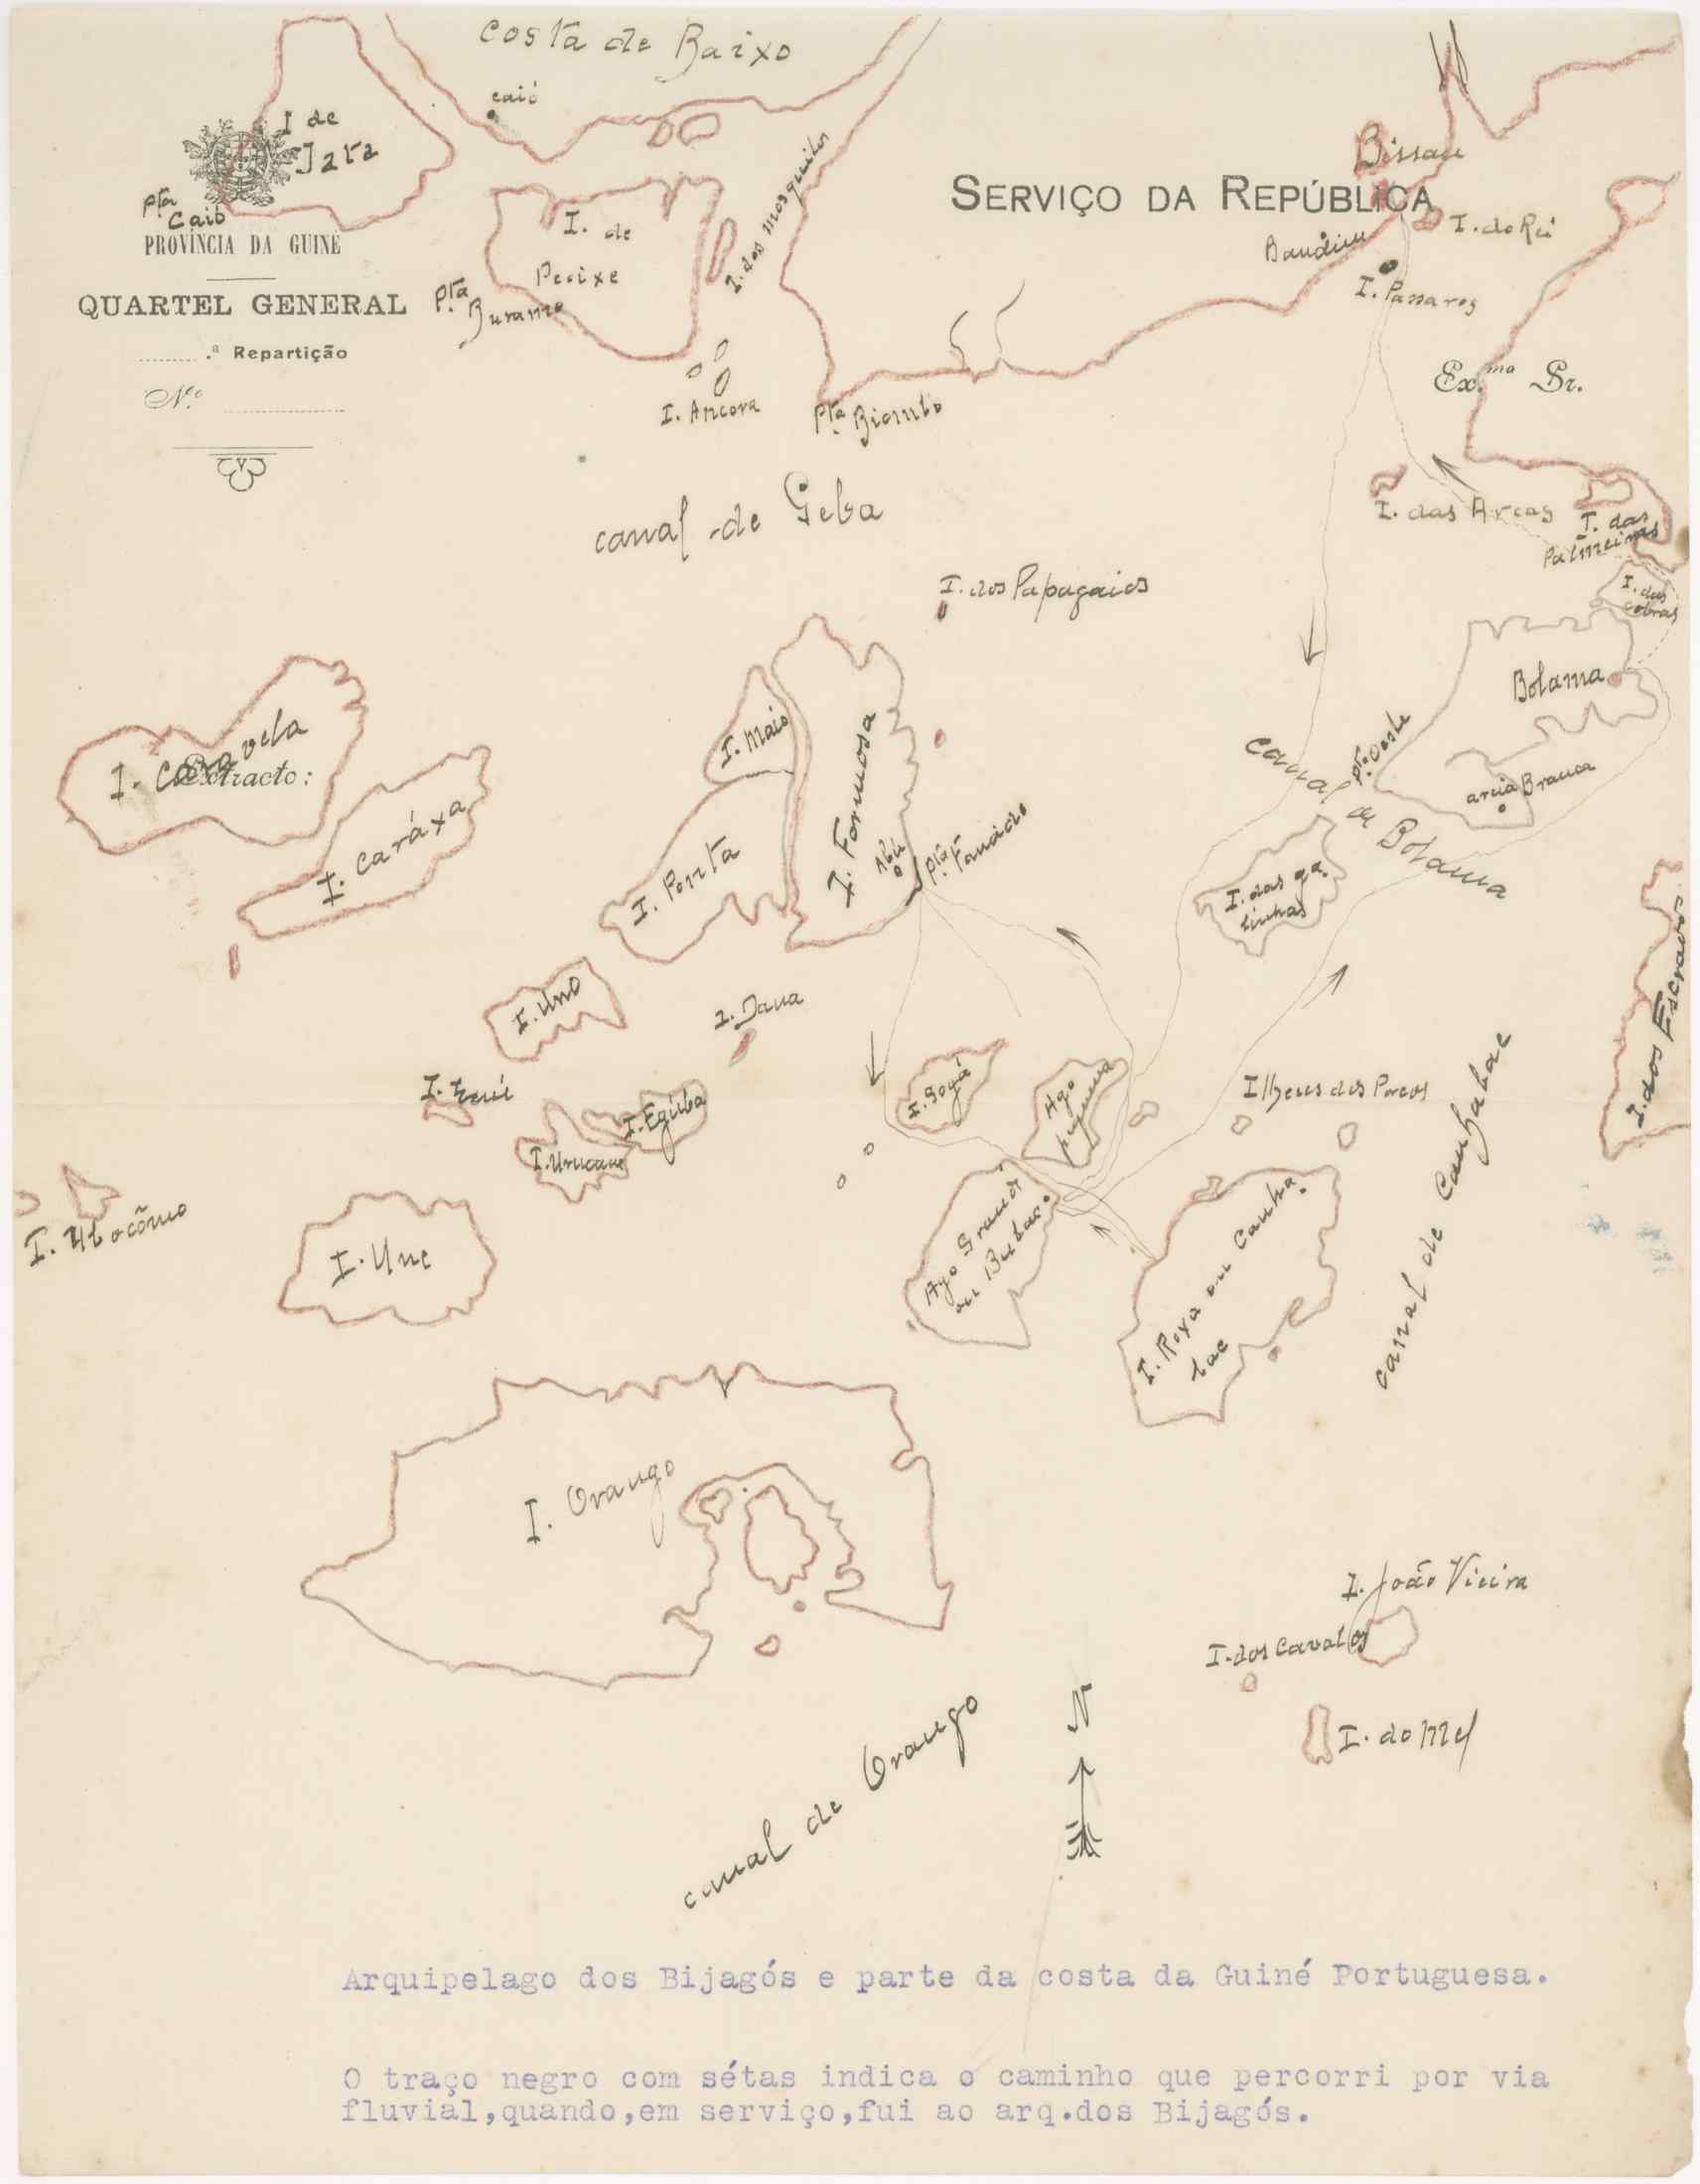 Costa de Baixo
caió
I de
Jata
Pta
Caió
PROVÍNCIA DA GUINÉ
QUARTEL GENERAL
........ .ª Repartição
N.º
SERVIÇO DA REPÚBLICA
Bissau
I. do Rei
Bandim
I. Passaros
I. de
Pecixe
Pta
I. dos mosquitos
I. Ancora
Pta Biombo
Ex.mo Sr.
canal de Geba
I. das Arcas
I. das
Palmeiras
I. das
cobras
I. dos Papagaios
Bolama
Pta Oeste
areia Branca
canal de Bolama
I. Caravela
Extracto:
I. Caráxa
I. Maio
I. Formosa
I. Ponta
Pta Fanado
I. das ga-
linhas
I. dos Escravos
I. Uno
I. Sogá
Ago
pequena
Ilheus dos Porcos
I. Egúba
I. Une
Ago Grande
ou Bubac
I. Roxa ou Canha-
bac
canal de Canhabac
I. Orango
I. João Vieira
I. dos Cavalos
I. do Mel
N
canal de Orango
Arquipelago dos Bijagós e parte da costa da Guiné Portuguesa.
O traço negro com sétas indica o caminho que percorri por via
fluvial,quando,em serviço,fui ao arq.dos Bijagós.